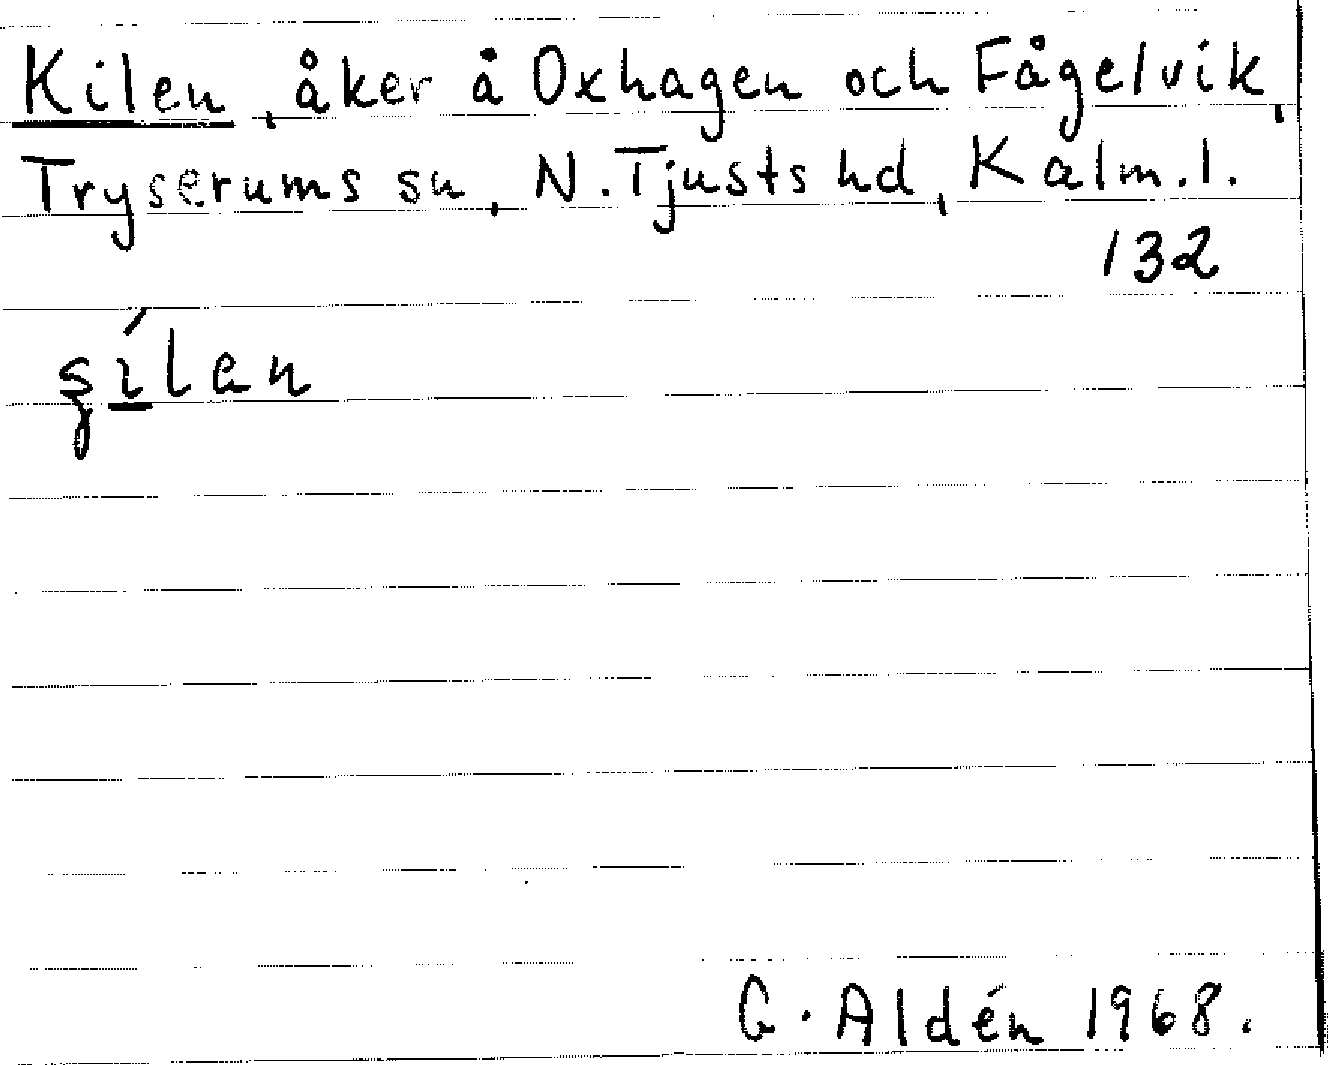 Kilen, åker å Oxhagen och Fågelvik,
Tryserums sn, N. Tjusts hd, Kalm. l.
132
G. Aldén 1968.